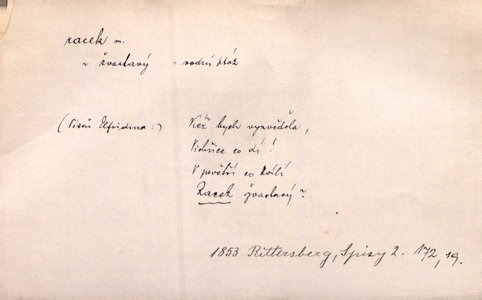 racek m.
~ žvastavý - vodní pták
(Píseň Elfridina:) Kéž bych vyzvěděla,
Vichřice co dí!
V povětří co kvílí
Racek žvastavý?
1853 Rittersberg, Spisy 2. 172, 19.